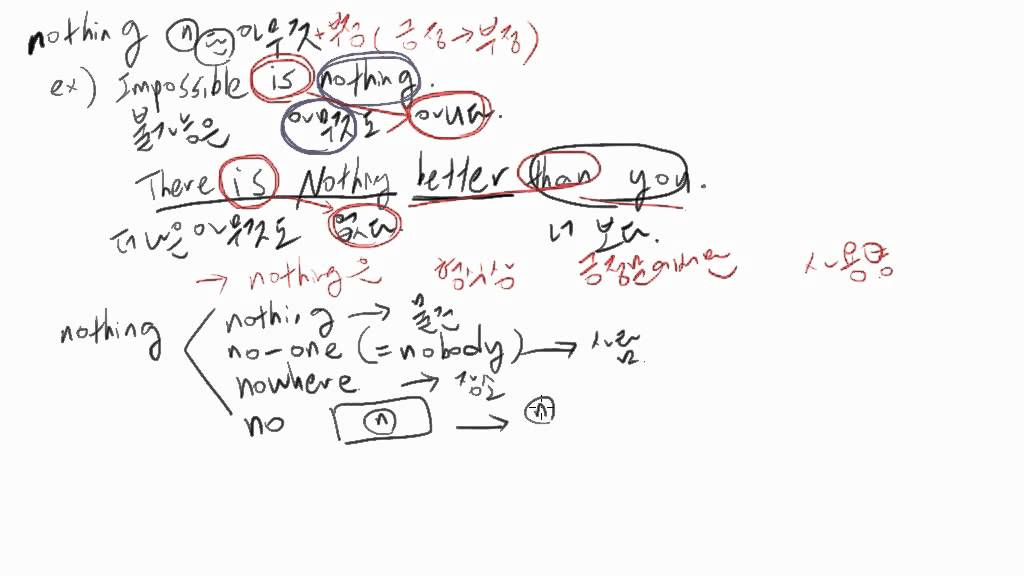 nothing ⓝ 은 아무것+부정(긍정→부정)
ex) Impossible is nothing.
불가능은 아무것도 아니다.
There is Nothing better than you.
더 나은 아무것도 없다 너 보다.
→ nothing은 항상 긍정문에서만 사용됨.
nothing
nothing → 물건
no-one (=nobody) → 사람
nowhere → 장소
no ⓝ → ⓝ